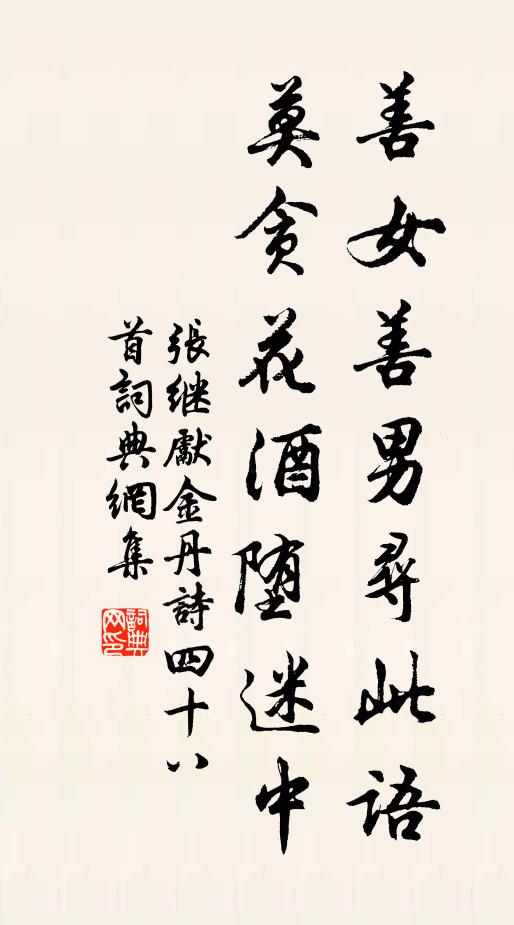 善女善男尋此語
莫貪花酒堕迷中
張继獻金丹詩四十八
首詞典網集
詞典网印